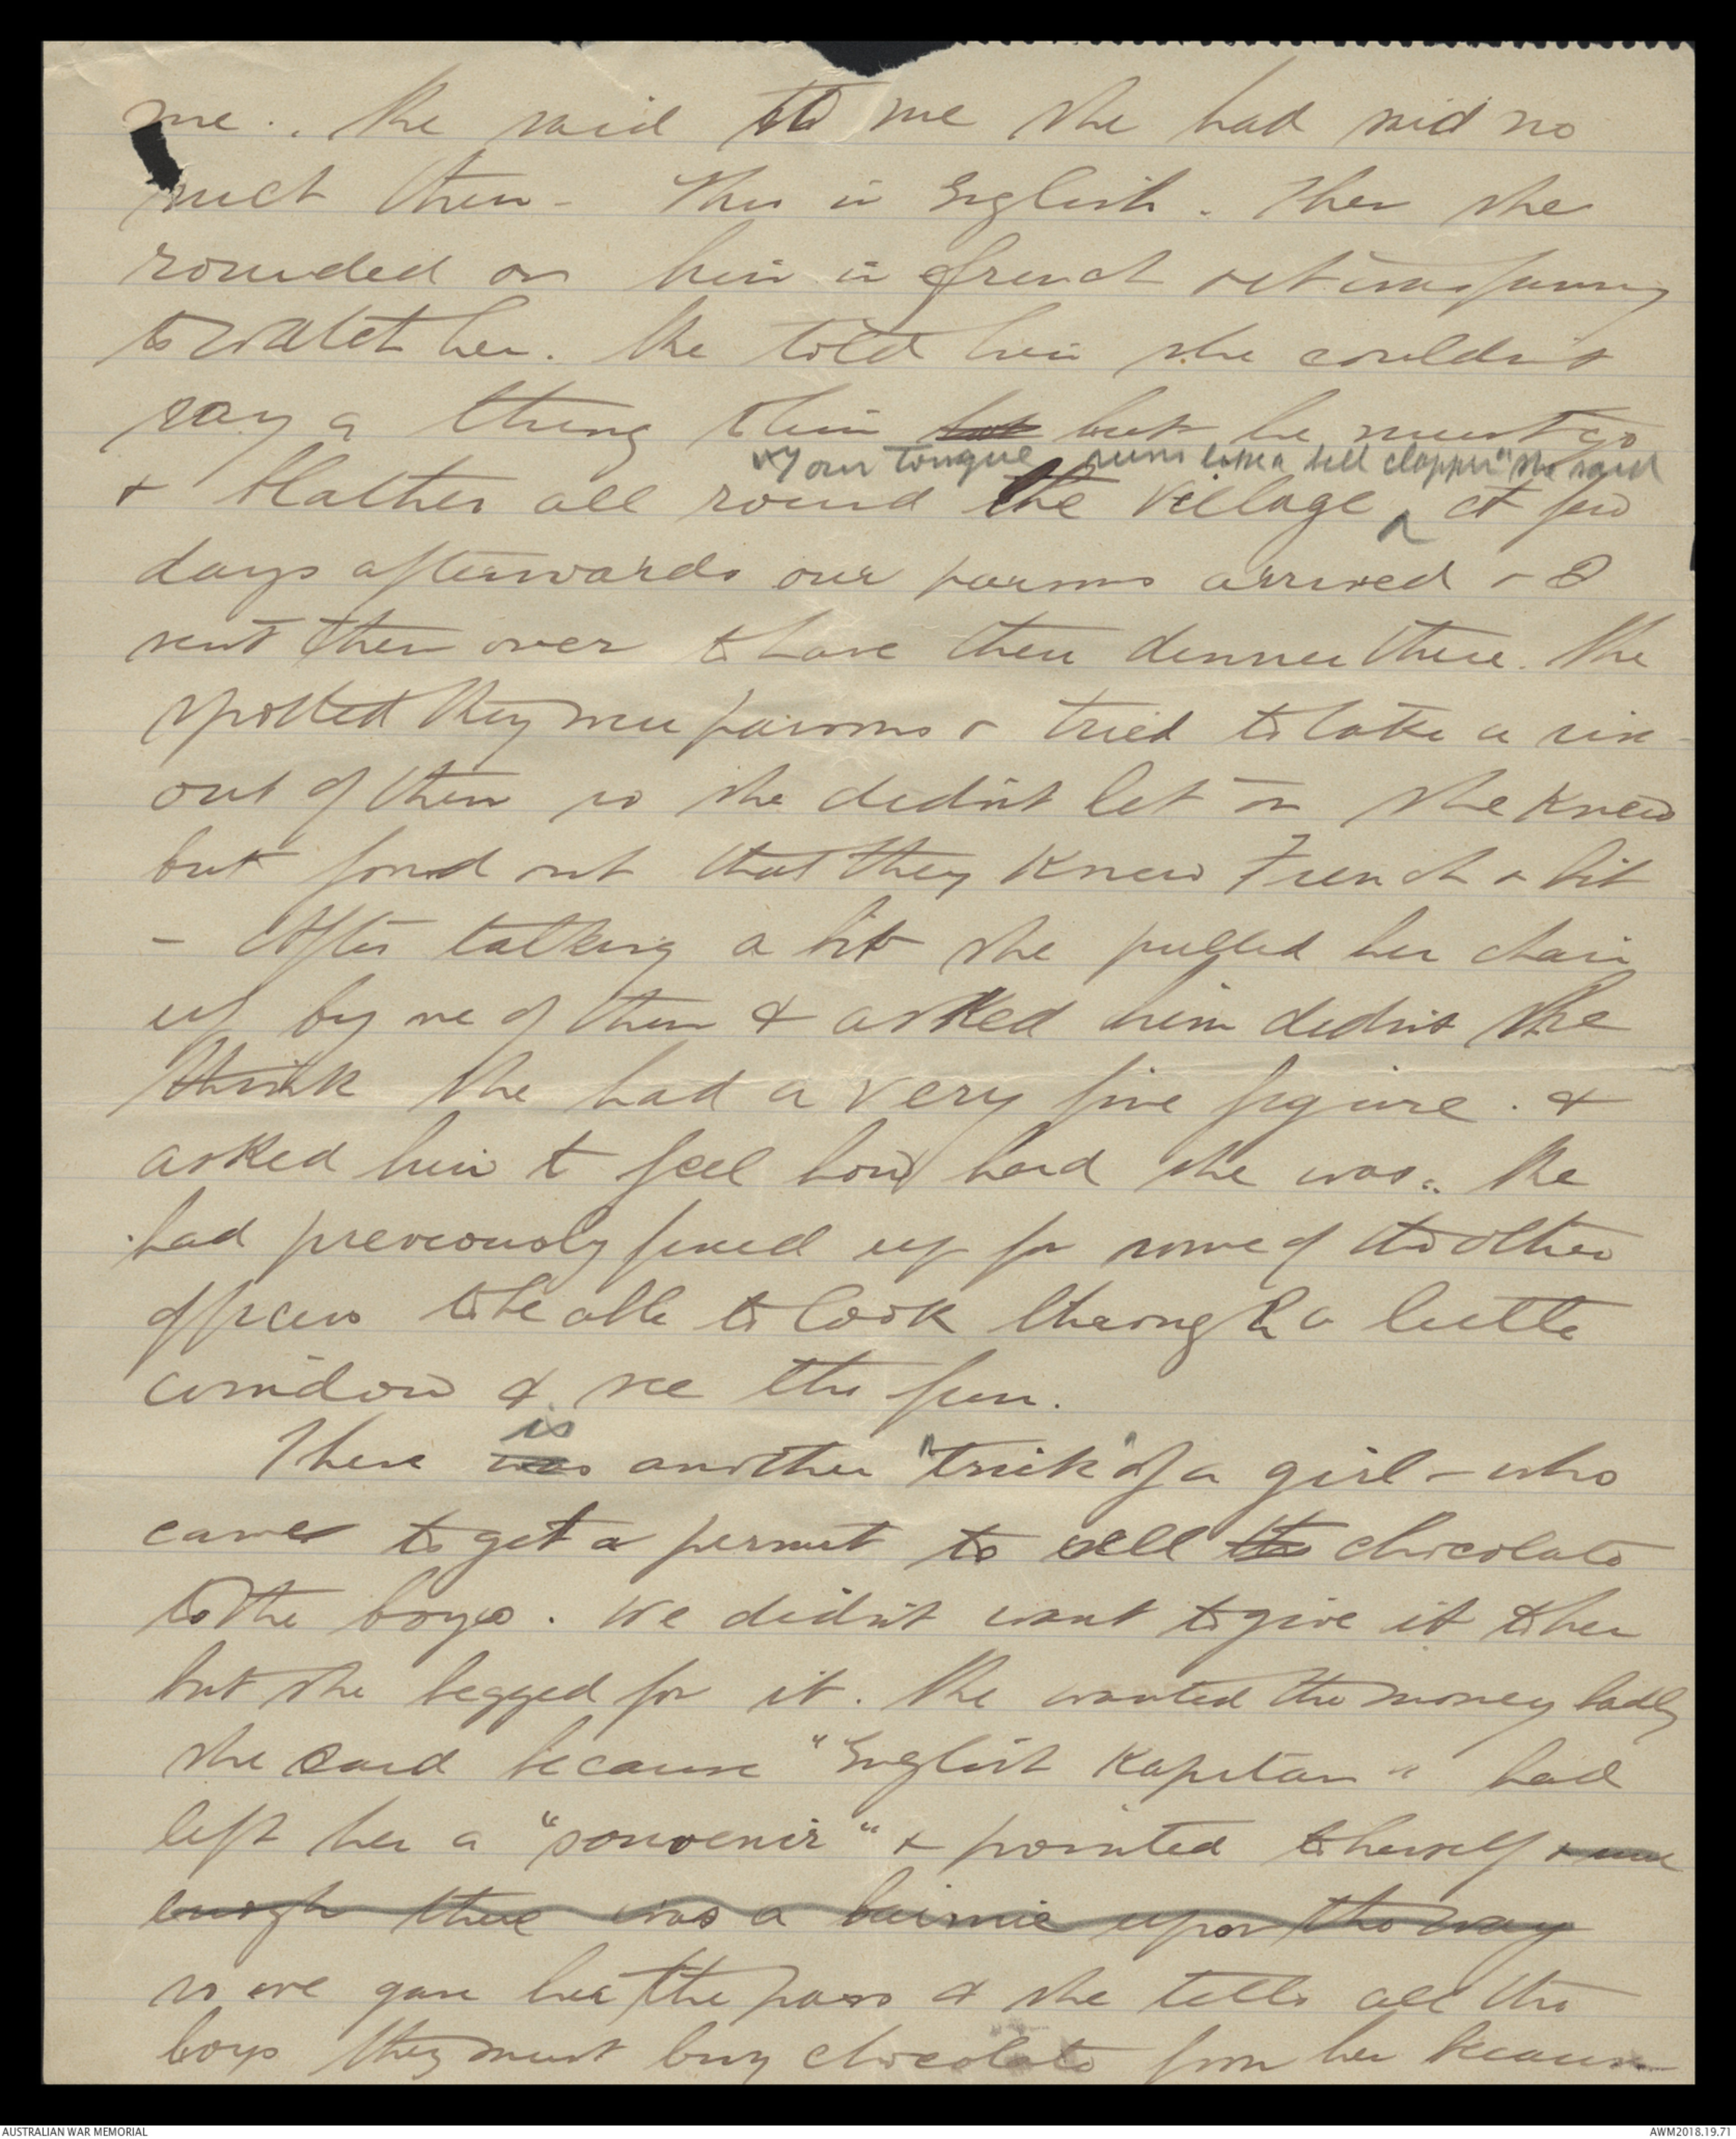 me. She said to me she had said no
such then - This in English. Then she
rounded on him in French & it was funny
to watch her. She told him she couldn't
say a thing to him but but he must go
"Your tongue runs like a bell clapper" she said
& blather all round the village ^ A few
days afterwards our parsons arrived & I
sent them over to have their dinner there. She
spotted they were parsons & tried to take a rise
out of them so she didn't let on she knew
but found out that they knew French a bit
- After talking a bit she pulled her chair
up by one of them & asked him didn't she
think she had a very fine figure. &
asked him to feel how hard she was. She
had previously fixed up for some of the other
officers to be able to look through a little
window & see the fun.
is
There was another "trick" of a girl - who
came to get a permit to sell the chocolate
to the boys. We didn't want to give it to her
but she begged for it. She wanted the money badly
she said because "English Kapitan" had
left her a "souvenir" & pointed to herself & sure
enough there was a bairnie upon the way
so we gave her the pass & she tells all the
boys they must buy chocolate from her because
AUSTRALIAN WAR MEMORIAL
AWM2018.19.71